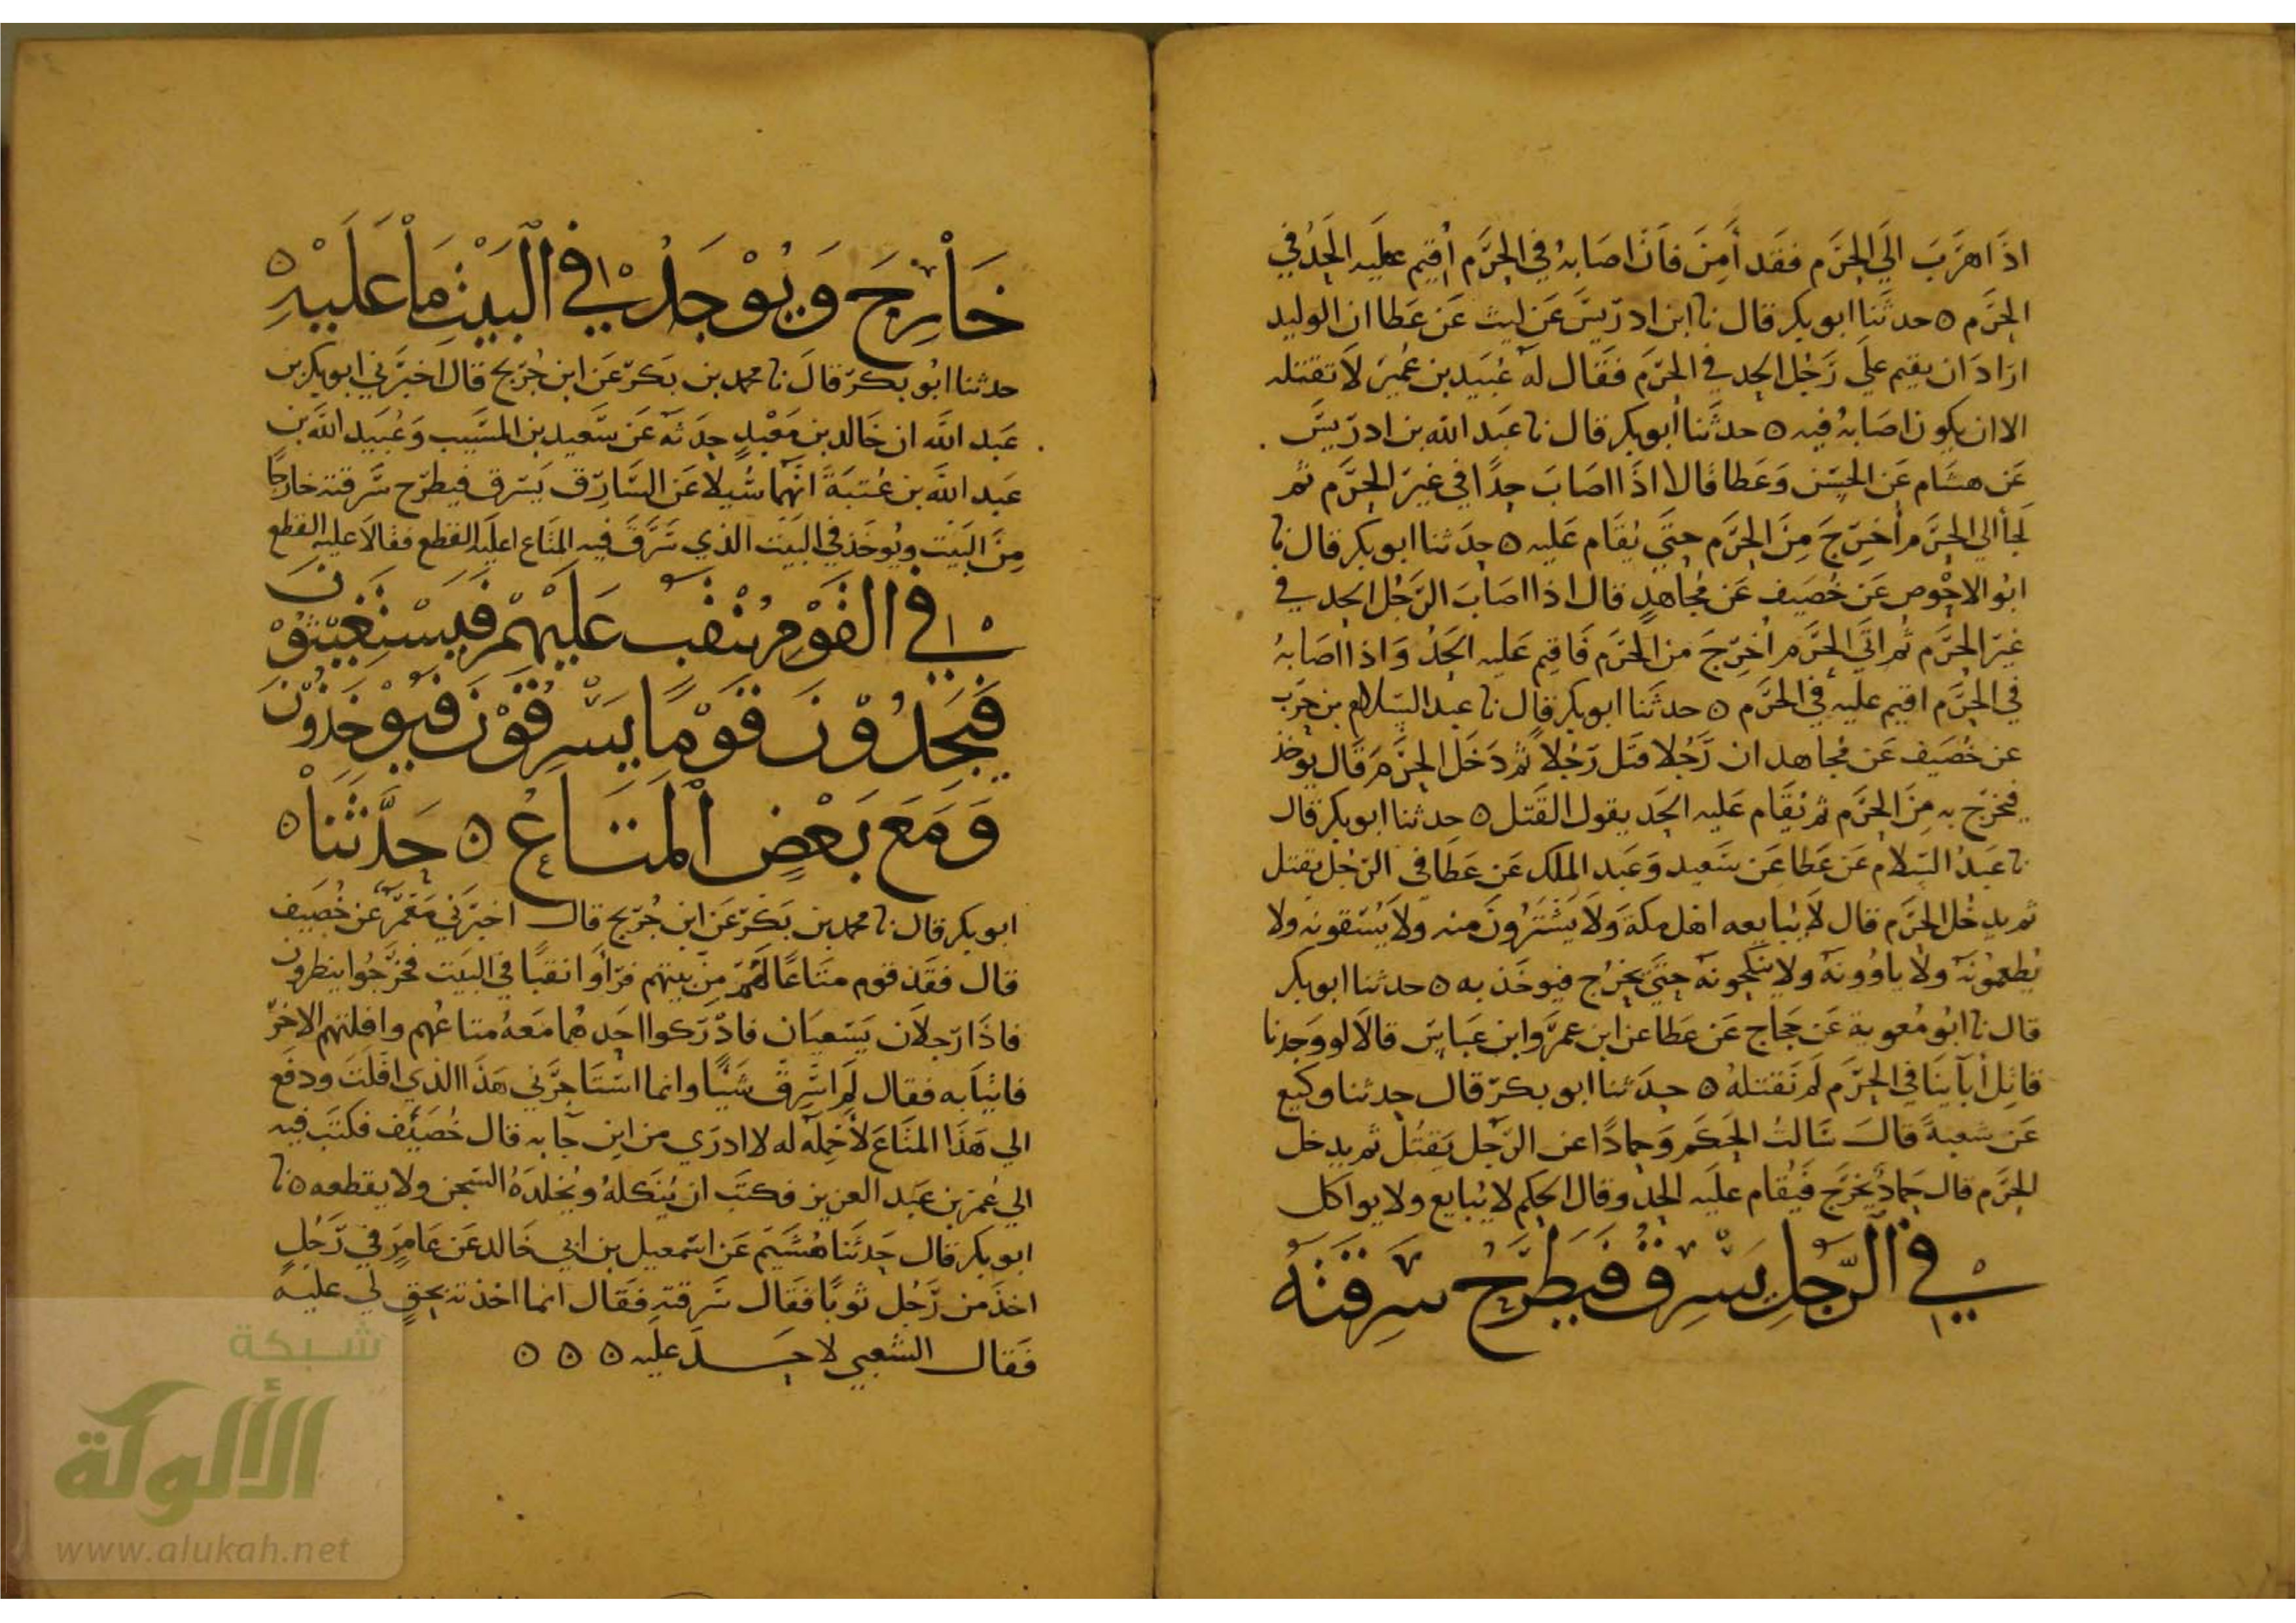 اذا هرب الي الحرم فقد أمن فان اصابه في الحرم أقيم عليه الحد في
الحرم ٥ حدثنا ابو بكر قال نا ابن ادريس عن ليث عن عطا ان الوليد
اراد ان يقيم علي رجل الحد في الحرم فقال له عبيد بن عمير لا تقتله
الا ان يكون اصابه فيه ٥ حدثنا ابو بكر قال نا عبد الله بن ادريس
عن هشام عن الحسن وعطا قالا اذا اصاب حدا في غير الحرم ثم
لجأ الي الحرم أخرج من الحرم حتي يقام عليه ٥ حدثنا ابو بكر قال نا
ابو الاحوص عن خصيف عن مجاهد قال اذا اصاب الرجل الحد في
غير الحرم ثم اتي الحرم اخرج من الحرم فاقيم عليه الحد واذا اصابه
في الحرم اقيم عليه في الحرم ٥ حدثنا ابو بكر قال نا عبد السلام بن حرب
عن خصيف عن مجاهد ان رجلا قتل رجلا ثم دخل الحرم قال يوخذ
فيخرج به من الحرم ثم يقام عليه الحد يقول القتل ٥ حدثنا ابو بكر قال
نا عبد السلام عن عطا عن سعيد وعبد الملك عن عطا في الرجل يقتل
ثم يدخل الحرم قال لا يبايعه اهل مكة ولا يشترون منه ولا يسقونه ولا
يطعمونه ولا ياوونه ولا ينكحونه حتي يخرج فيوخذ به ٥ حدثنا ابو بكر
قال نا ابو معوية عن حجاج عن عطا عن ابن عمر وابن عباس قالا لو وجدنا
قاتل أباينا في الحرم لم نقتله ٥ حدثنا ابو بكر قال حدثنا وكيع
عن شعبة قال سالت الحكم وحمادا عن الرجل يقتل ثم يدخل
الحرم قال حماد يخرج فيقام عليه الحد وقال الحكم لا يبايع ولا يواكل
في الرجل يسرق فيطرح سرقته
خارج ويوجد في البيت ما عليه ٥
حدثنا ابو بكر قال نا محمد بن بكر عن ابن جريج قال اخبرني ابو بكر بن
عبد الله ان خالد بن معبد حدثه عن سعيد بن المسيب وعبيد الله بن
عبد الله بن عتبة انهما سيلا عن السارق يسرق فيطرح سرقته خارجا
من البيت ويوخذ في البيت الذي سرق فيه المتاع اعليه القطع فقالا عليه القطع
في القوم ينقب عليهم فيستغيثون
فيجدون قوما يسرقون فيوخذون
ومع بعض المتاع ٥ حدثنا ٥
ابو بكر قال نا محمد بن بكر عن ابن جريج قال اخبرني معمر عن خصيف
قال فقد قوم متاعا لهم من بيتهم فرأوا نقبا في البيت فخرجوا ينظرون
فاذا رجلان يسعيان فادركوا احدهما معه متاعهم وافلتهم الاخر
فاتيا به فقال لم اسرق شيًا وانما استاجرني هذا الذي افلت ودفع
الي هذا المتاع لأحمله له لا ادري من اين جا به قال خصيف فكتب فيه
الي عمر بن عبد العزيز فكتب ان ينكله ويخلده السجن ولا يقطعه ٥ نا
ابو بكر قال حدثنا هشيم عن اسمعيل بن ابي خالد عن عامر في رجل
اخذ من رجل ثوبا فقال سرقته فقال انما اخذته بحق لي عليه
فقال الشعبي لا حد عليه ٥ ٥ ٥
شبكة
الألوكة
www.alukah.net